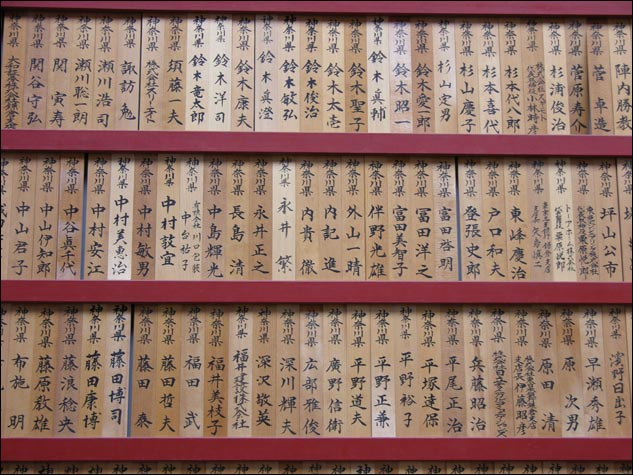 神奈川県 陣内勝教
神奈川県 菅卓造
神奈川県 菅原寿介
神奈川県 杉浦俊治
神奈川県 小林時彦
神奈川県 杉本代八郎
神奈川県 杉本喜代
神奈川県 杉山慶子
神奈川県 杉山定男
神奈川県 鈴木愛一郎
神奈川県 鈴木昭一
神奈川県 鈴木兵輔
神奈川県 鈴木聖子
神奈川県 鈴木太壱
神奈川県 鈴木俊治
神奈川県 鈴木敏弘
神奈川県 鈴木真澄
神奈川県 鈴木康夫
神奈川県 鈴木洋司
神奈川県 鈴木竜太郎
神奈川県 須藤一夫
神奈川県 株式会社
神奈川県 諏訪勉
神奈川県 瀬川浩司
神奈川県 瀬川聡一朗
神奈川県 関寅寿
神奈川県 関谷守弘
神奈川県
神奈川県 坪山公市
神奈川県
神奈川県
神奈川県
神奈川県 東峰慶治
神奈川県 戸口和夫
神奈川県 登張史郎
神奈川県 富田裕明
神奈川県 冨田洋之
神奈川県 富田美智子
神奈川県 伴野光雄
神奈川県 外山一晴
神奈川県 内記進
神奈川県 内貴徹
神奈川県 永井繁
神奈川県 永井正之
神奈川県 長島清
神奈川県 中島輝光
神奈川県 有限会社川口包装 中台祐子
神奈川県 中村談宜
神奈川県 中村敏男
神奈川県 中村美恵治
神奈川県 中村安江
神奈川県 中谷眞千代
神奈川県 中山伊知郎
神奈川県 中山君子
神奈川県 濱野日出子
神奈川県 早瀬秀雄
神奈川県 原次男
神奈川県 原田清
神奈川県
神奈川県
神奈川県 兵藤昭芳
神奈川県 平尾正治
神奈川県 平塚達保
神奈川県 平野裕子
神奈川県 平野正兼
神奈川県 平野道夫
神奈川県 廣野信衛
神奈川県 広部雅俊
神奈川県 深川輝夫
神奈川県 深沢敬英
神奈川県 福井建設株式会社
神奈川県 福井美枝子
神奈川県 福田武
神奈川県 藤田哲夫
神奈川県 藤田泰
神奈川県 藤田博司
神奈川県 藤田康博
神奈川県 藤浪稔央
神奈川県 藤原敦雄
神奈川県 布施明